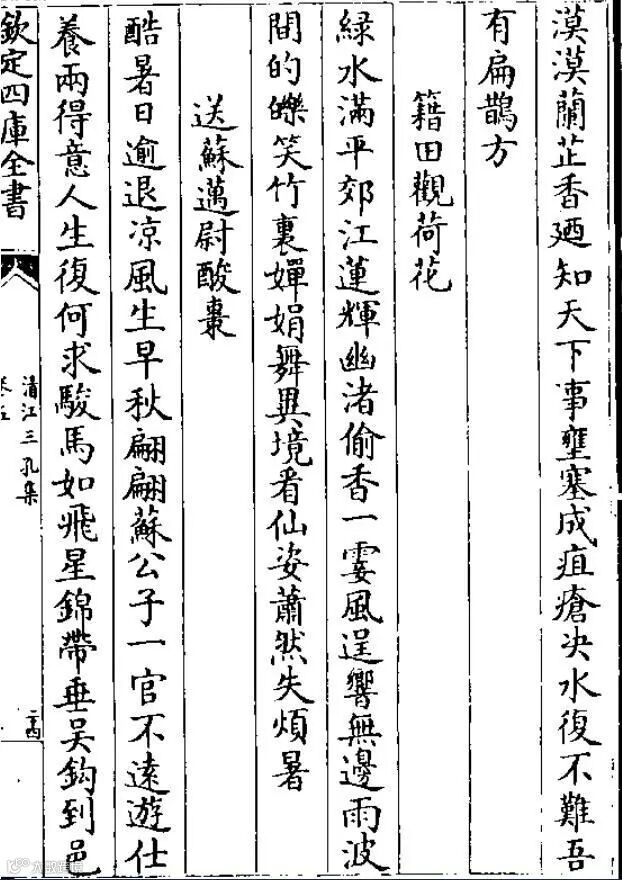 漠漠蘭芷香廼知天下事壅塞成疽瘡决水復不難吾
有扁鵲方
籍田觀荷花
緑水滿平郊江蓮輝幽渚偷香一霎風逞響無邊雨波
間的皪笑竹裏嬋娟舞異境看仙姿蕭然失煩暑
送蘇邁尉酸棗
酷暑日逾退凉風生早秋翩翩蘇公子一官不遠遊仕
養兩得意人生復何求駿馬如飛星錦帶垂吴鈎到邑
欽定四庫全書
清江三孔集
卷五
二十四